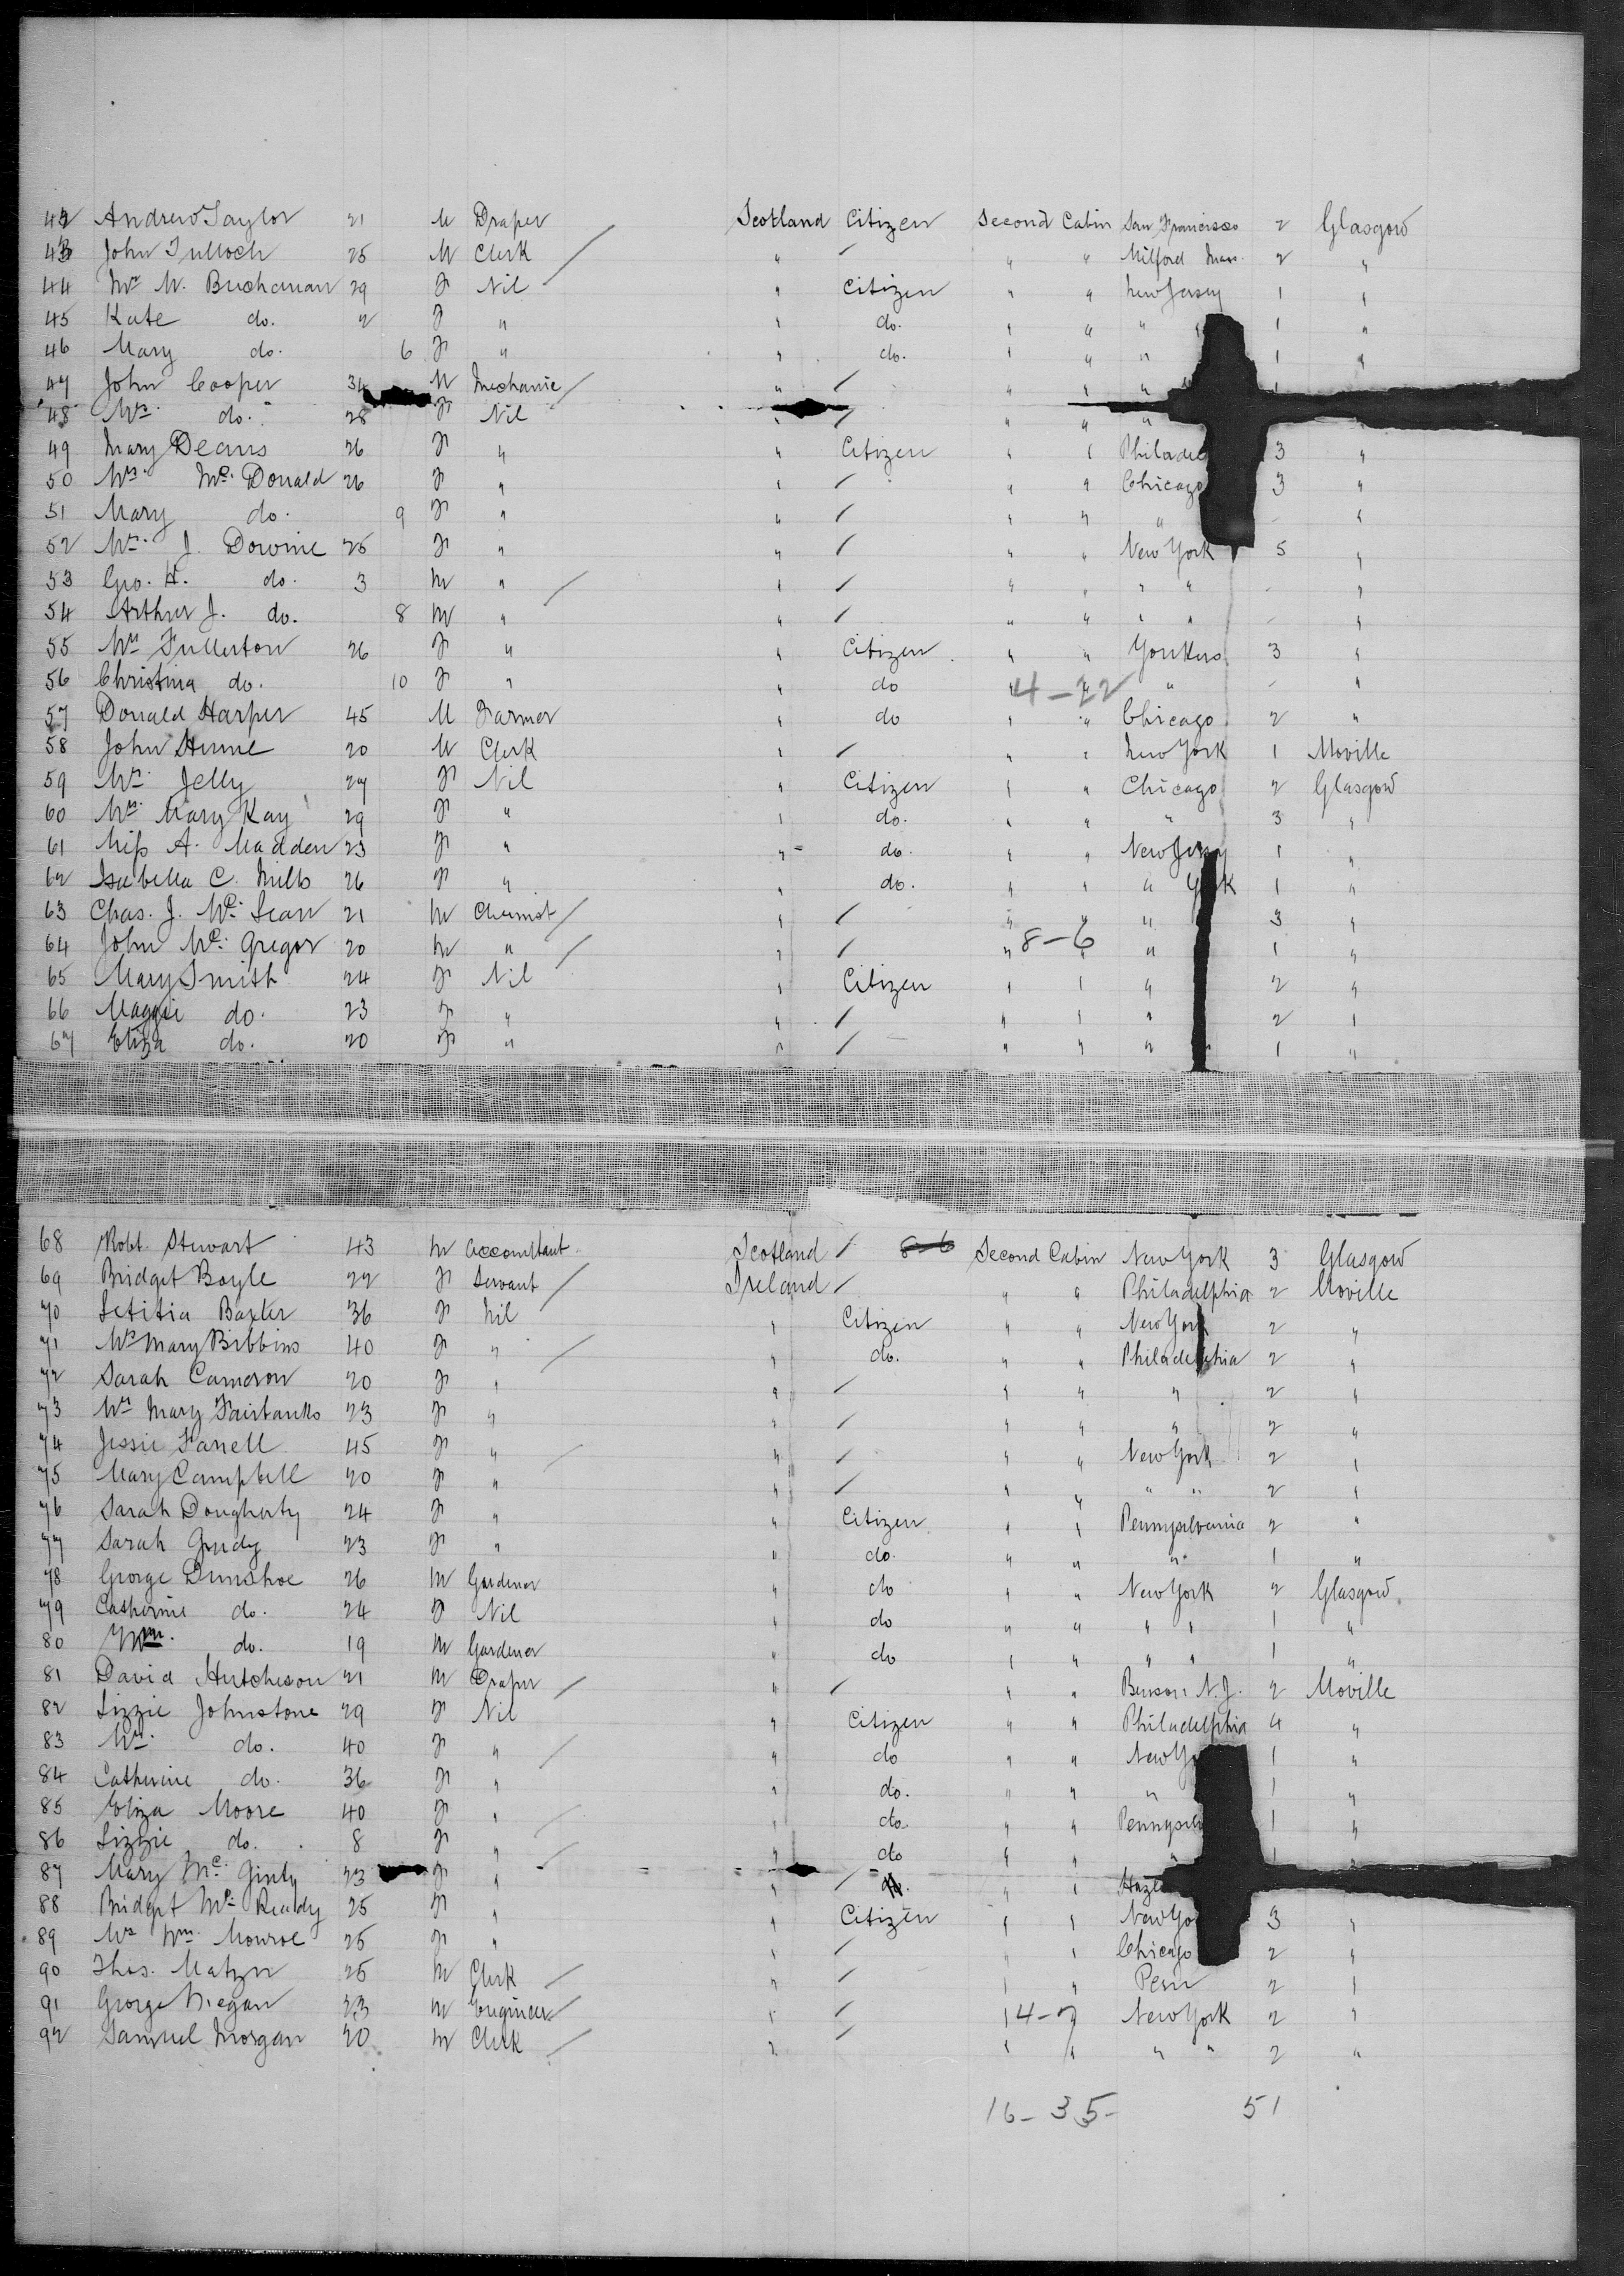 42 Andrew Taylor 21 M Draper Scotland Citizen Second Cabin San Francisco 2 Glasgow
43 John Tulloch 25 M Clerk / " / " " Milford Mass. 2 "
44 Mrs W. Buchanan 29 F Nil " Citizen " " New Jersey 1 "
45 Kate do. 2 F " " do. " " " 1 "
46 Mary do. 6 F " " do. " " " 1 "
47 John Cooper 34 M Mechanic / " / " " "
48 Mrs. do. 28 F Nil " / " " "
49 Mary Deans 26 F " " Citizen " " Philadel 3 "
50 Mrs. Mc. Donald 26 F " " / " " Chicago 3 "
51 Mary do. 9 F " " / " " " - "
52 Mrs. J. Downie 25 F " " / " " New York 5 "
53 Geo. H. do. 3 M " / " / " " " " - "
54 Arthur J. do. 8 M " " / " " " " - "
55 Mrs Fullerton 26 F " " Citizen " " Yonkers 3 "
56 Christina do. 10 F " " do " " " - "
4-22
57 Donald Harper 45 M Farmer " do " " Chicago 2 "
58 John Hume 20 M Clerk " / " " New York 1 Moville
59 Mrs. Jelly 27 F Nil " Citizen " " Chicago 2 Glasgow
60 Mrs. Mary Kay 29 F " " do. " " " 3 "
61 Miss A. Madden 23 F " " do. " " New Jersey 1 "
62 Isabella C. Mills 26 F " " do. " " " York 1 "
63 Chas. J. Mc. Lean 21 M Chemist / " / " " " 3 "
64 John Mc. Gregor 20 M " / " / " " " 1 "
8-6
65 Mary Smith 24 F Nil " Citizen " " " 2 "
66 Maggie do. 23 F " " / " " " 2 "
67 Eliza do. 20 F " " / " " " 1 "
68 Robt. Stewart 43 M Accountant Scotland / 8-6 Second Cabin New York 3 Glasgow
69 Bridget Boyle 22 F Servant / Ireland / " " Philadelphia 2 Moville
70 Letitia Baxter 36 F Nil " Citizen " " New York 2 "
71 Mrs Mary Bibbins 40 F " / " do. " " Philadelphia 2 "
72 Sarah Cameron 20 F " " / " " " 2 "
73 Mrs Mary Fairbanks 23 F " " / " " " 2 "
74 Jessie Farrell 45 F " / " / " " New York 2 "
75 Mary Campbell 20 F " " / " " " " 2 "
76 Sarah Dougherty 24 F " " Citizen " " Pennysilvania 2 "
77 Sarah Grudy 23 F " " do. " " " 1 "
78 George Dunshoe 26 M Gardener " do " " New York 2 Glasgow
79 Catherine do. 24 F Nil " do " " " " 1 "
80 Wm. do. 19 M Gardener " do " " " " 1 "
81 David Hutcheson 21 M Draper / " / " " Benson N.J. 2 Moville
82 Lizzie Johnstone 29 F Nil " Citizen " " Philadelphia 4 "
83 Mrs. do. 40 F " / " do " " New Yo 1 "
84 Catherine do. 36 F " " do. " " " 1 "
85 Eliza Moore 40 F " / " do. " " Pennysil 1 "
86 Lizzie do. 8 F " / " do " " " 1 "
87 Mary Mc. Ginty 23 F " " / do. " " Hazle
88 Bridget Mc. Ready 25 F " " Citizen " " New Yo 3 "
89 Mrs Wm. Monroe 25 F " " / " " Chicago 2 "
90 Thos. 25 M Clerk / " / " " Penn 2 "
91 George 23 M Engineer / " / " " New York 2 "
4-7
92 Samuel Morgan 20 M Clerk / " / " " " " 2 "
16-35- 51